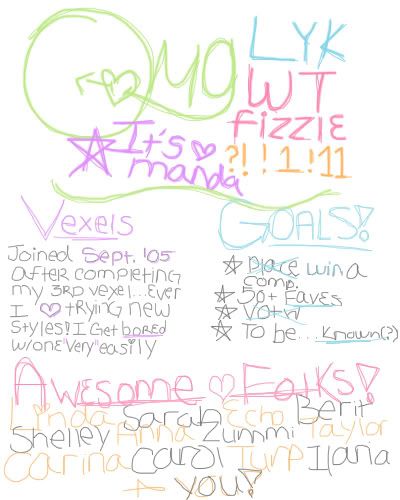 Omg
LYK
WT
FIZZIE
?!!1!11
It's
manda
Vexels
Joined Sept. '05
After completing
my 3RD vexel...Ever
I trying new
Styles! I Get bored
w/one "very" easily
GOALS!
Place win a
comp.
50+ Faves
Voted
To be... Known(?)
Awesome Folks!
Linda Sarah Echo Berit
Shelley Anna Zummi Taylor
Carina Carol Turp Ilaria
+ you!